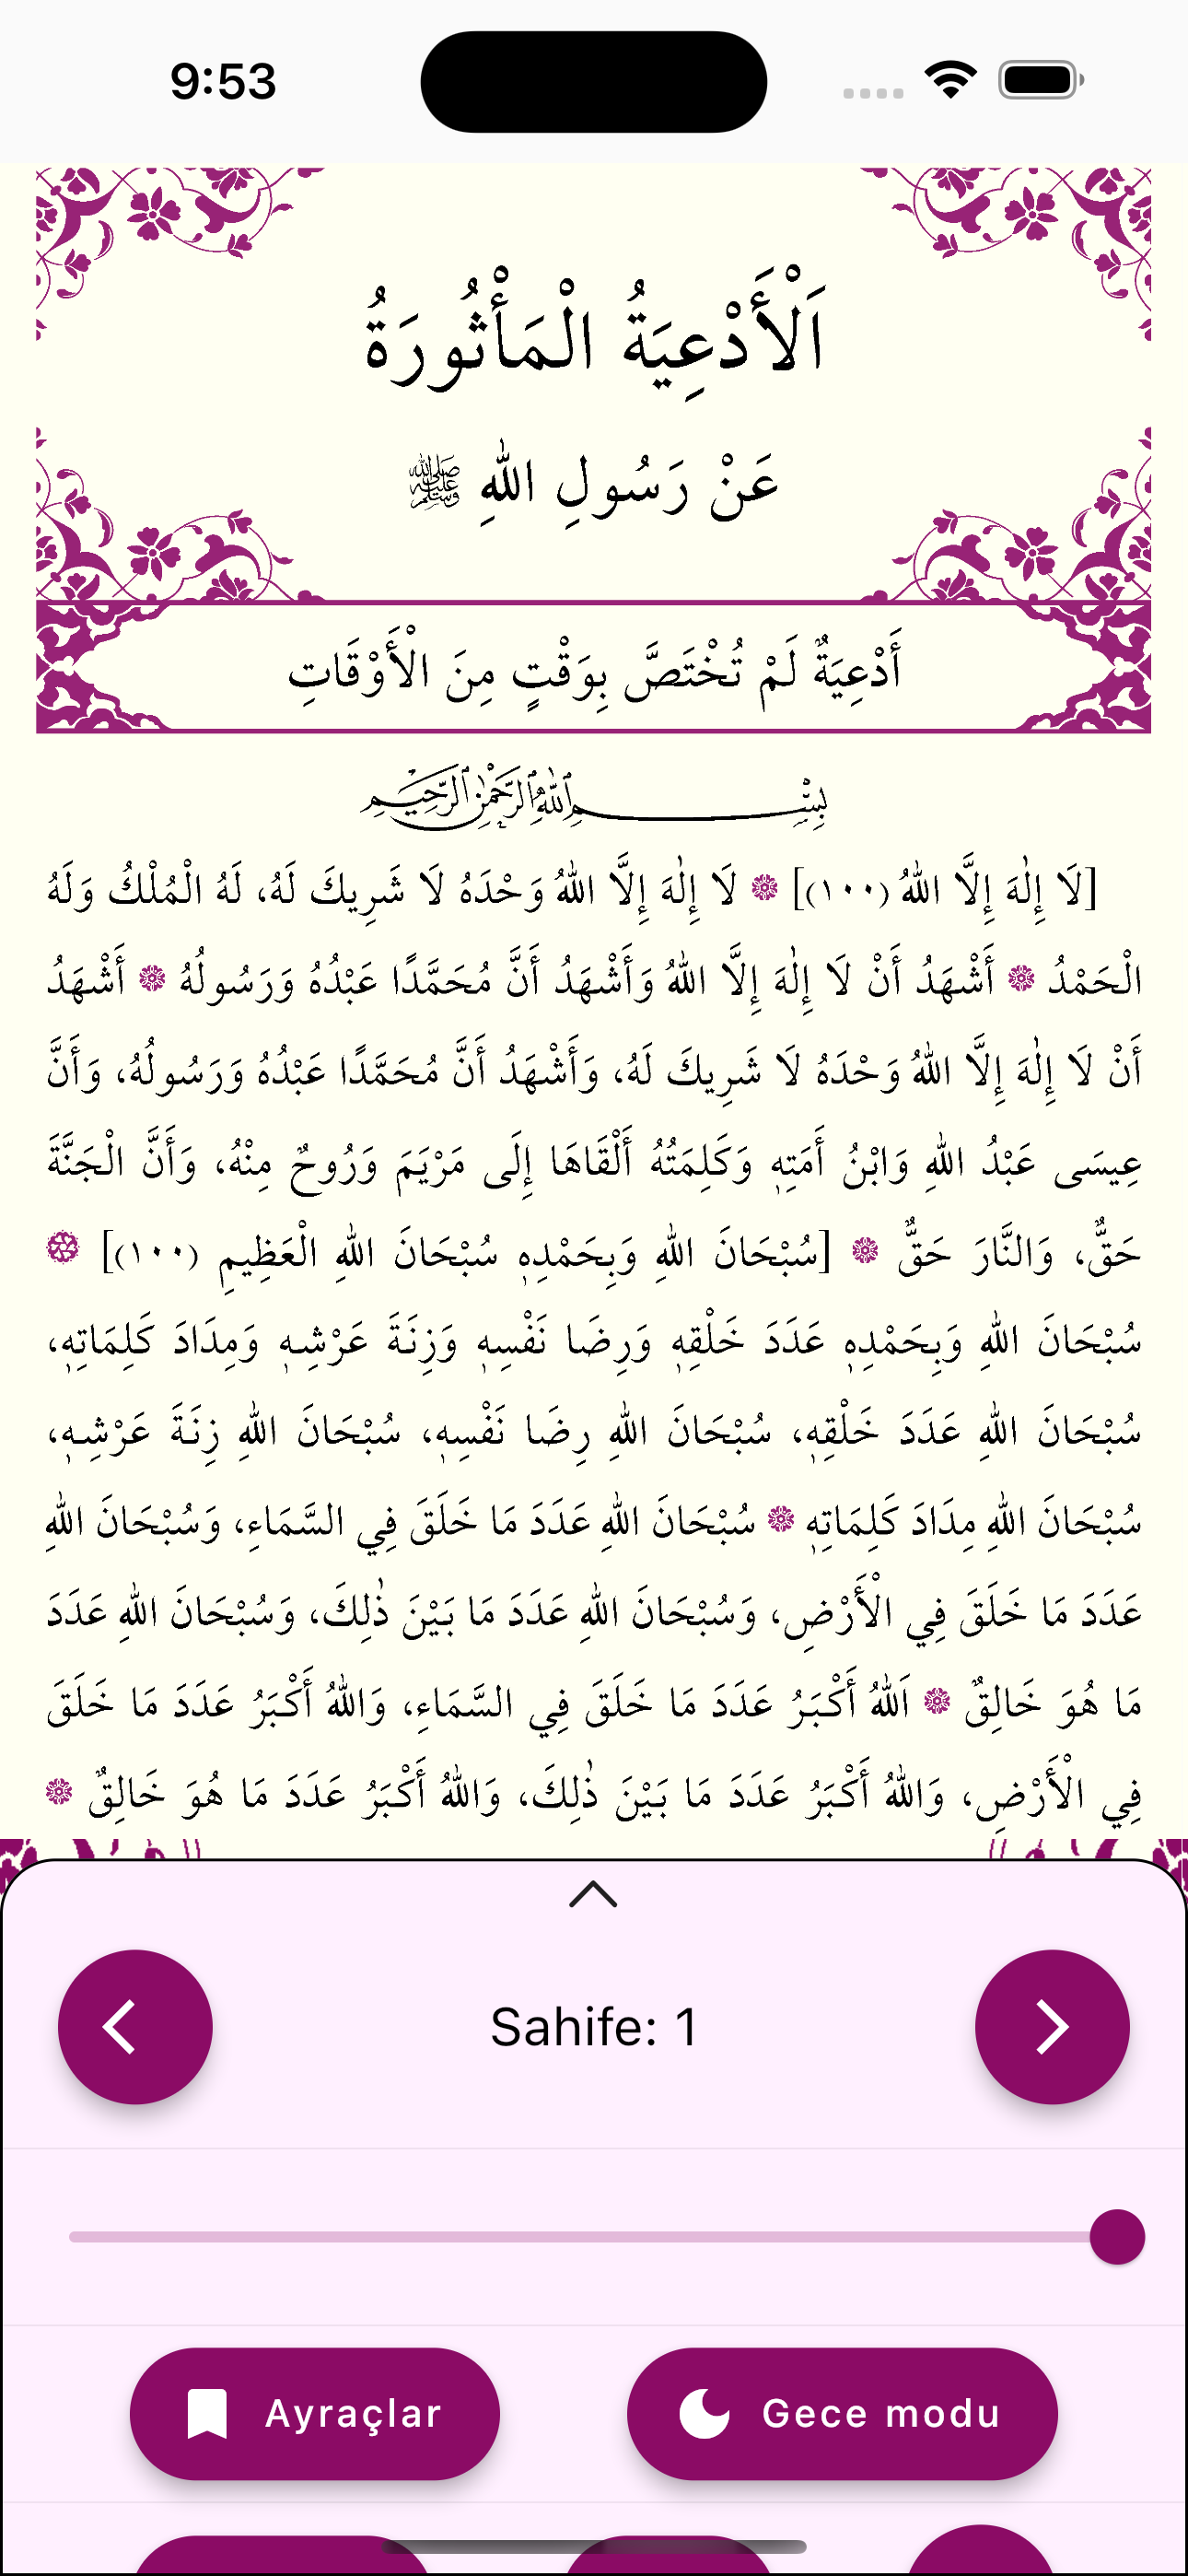 9:53
اَلْأَدْعِيَةُ الْمَأْثُورَةُ
عَنْ رَسُولِ اللهِ ﷺ
أَدْعِيَةٌ لَمْ تُخْتَصَّ بِوَقْتٍ مِنَ الْأَوْقَاتِ
بِسْمِ اللهِ الرَّحْمٰنِ الرَّحِيمِ
[لَا إِلٰهَ إِلَّا اللهُ (١٠٠)] ❁ لَا إِلٰهَ إِلَّا اللهُ وَحْدَهُ لَا شَرِيكَ لَهُ، لَهُ الْمُلْكُ وَلَهُ
الْحَمْدُ ❁ أَشْهَدُ أَنْ لَا إِلٰهَ إِلَّا اللهُ وَأَشْهَدُ أَنَّ مُحَمَّدًا عَبْدُهُ وَرَسُولُهُ ❁ أَشْهَدُ
أَنْ لَا إِلٰهَ إِلَّا اللهُ وَحْدَهُ لَا شَرِيكَ لَهُ، وَأَشْهَدُ أَنَّ مُحَمَّدًا عَبْدُهُ وَرَسُولُهُ، وَأَنَّ
عِيسَى عَبْدُ اللهِ وَابْنُ أَمَتِهٖ وَكَلِمَتُهُ أَلْقَاهَا إِلَى مَرْيَمَ وَرُوحٌ مِنْهُ، وَأَنَّ الْجَنَّةَ
حَقٌّ، وَالنَّارَ حَقٌّ ❁ [سُبْحَانَ اللهِ وَبِحَمْدِهٖ سُبْحَانَ اللهِ الْعَظِيمِ (١٠٠)] ❁
سُبْحَانَ اللهِ وَبِحَمْدِهٖ عَدَدَ خَلْقِهٖ وَرِضَا نَفْسِهٖ وَزِنَةَ عَرْشِهٖ وَمِدَادَ كَلِمَاتِهٖ،
سُبْحَانَ اللهِ عَدَدَ خَلْقِهٖ، سُبْحَانَ اللهِ رِضَا نَفْسِهٖ، سُبْحَانَ اللهِ زِنَةَ عَرْشِهٖ،
سُبْحَانَ اللهِ مِدَادَ كَلِمَاتِهٖ ❁ سُبْحَانَ اللهِ عَدَدَ مَا خَلَقَ فِي السَّمَاءِ، وَسُبْحَانَ اللهِ
عَدَدَ مَا خَلَقَ فِي الْأَرْضِ، وَسُبْحَانَ اللهِ عَدَدَ مَا بَيْنَ ذٰلِكَ، وَسُبْحَانَ اللهِ عَدَدَ
مَا هُوَ خَالِقٌ ❁ اَللهُ أَكْبَرُ عَدَدَ مَا خَلَقَ فِي السَّمَاءِ، وَاللهُ أَكْبَرُ عَدَدَ مَا خَلَقَ
فِي الْأَرْضِ، وَاللهُ أَكْبَرُ عَدَدَ مَا بَيْنَ ذٰلِكَ، وَاللهُ أَكْبَرُ عَدَدَ مَا هُوَ خَالِقٌ ❁
Sahife: 1
Ayraçlar
Gece modu